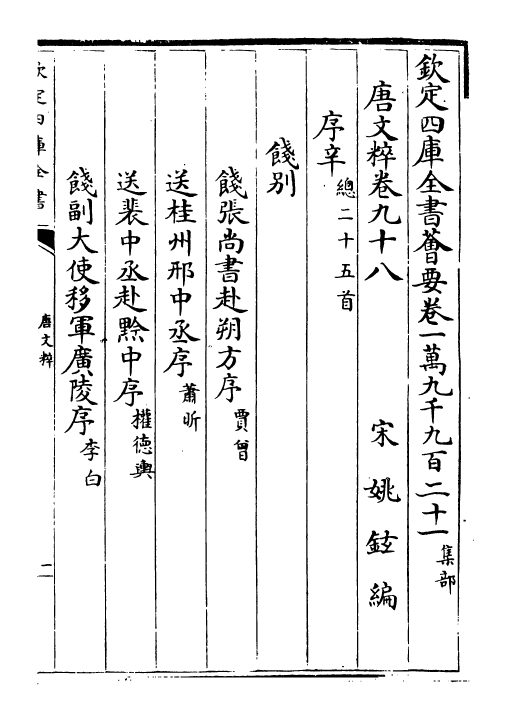 欽定四庫全書薈要卷一萬九千九百二十一 集部
唐文粹卷九十八 宋 姚鉉編
序辛 總二十五首
餞别
餞張尚書赴朔方序 賈曾
送桂州邢中丞序 蕭昕
送裴中丞赴黔中序 權德輿
餞副大使移軍廣陵序 李白
欽定四庫全書 唐文粹 一